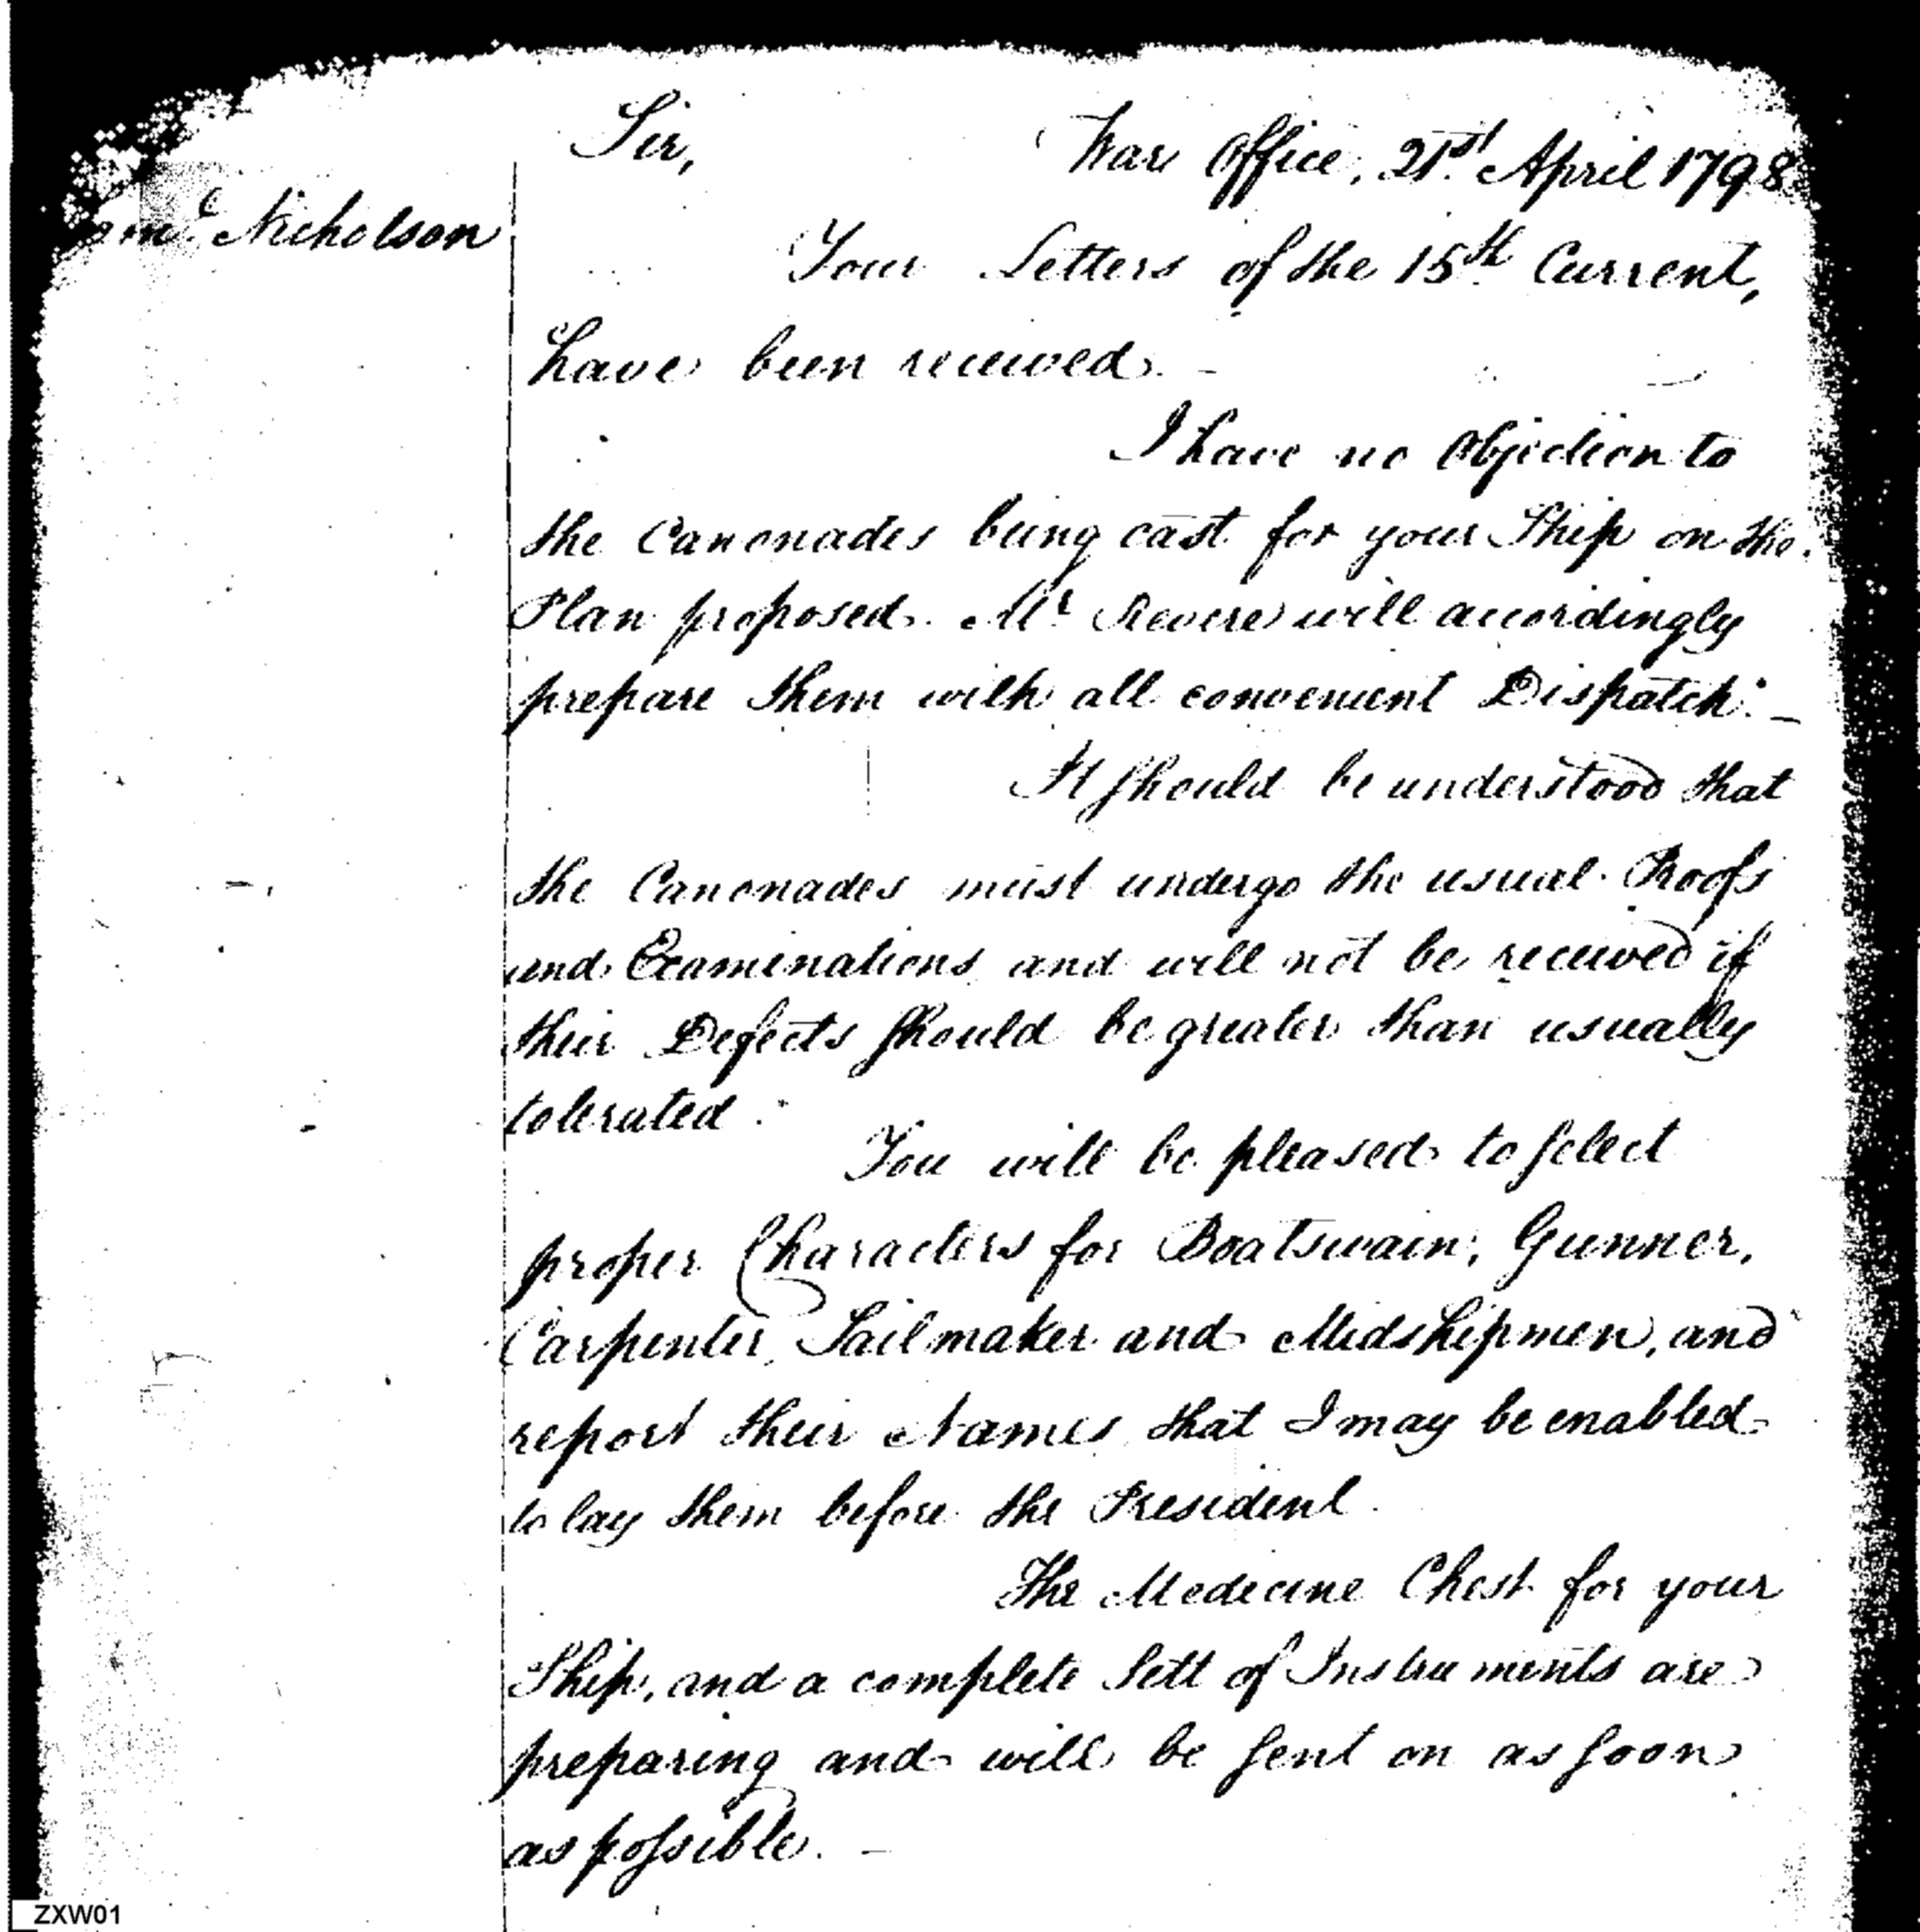 Sir,
War Office, 21st April 1798
Nicholson
Your Letters of the 15th Current,
have been received. -
I have no Objection to
the Canonades being cast for your Ship on the
Plan proposed. Mr Revere will accordingly
prepare them with all convenient Dispatch. -
It should be understood that
the Canonades must undergo the usual Proofs
and Examinations and will not be received if
their Defects should be greater than usually
tolerated.
You will be pleased to select
proper Characters for Boatswain, Gunner,
Carpenter, Sailmaker and Midshipmen, and
report their Names that I may be enabled
to lay them before the President.
The Medicine Chest for your
Ship, and a complete Sett of Instruments are
preparing and will be sent on as soon
as possible. -
ZXW01